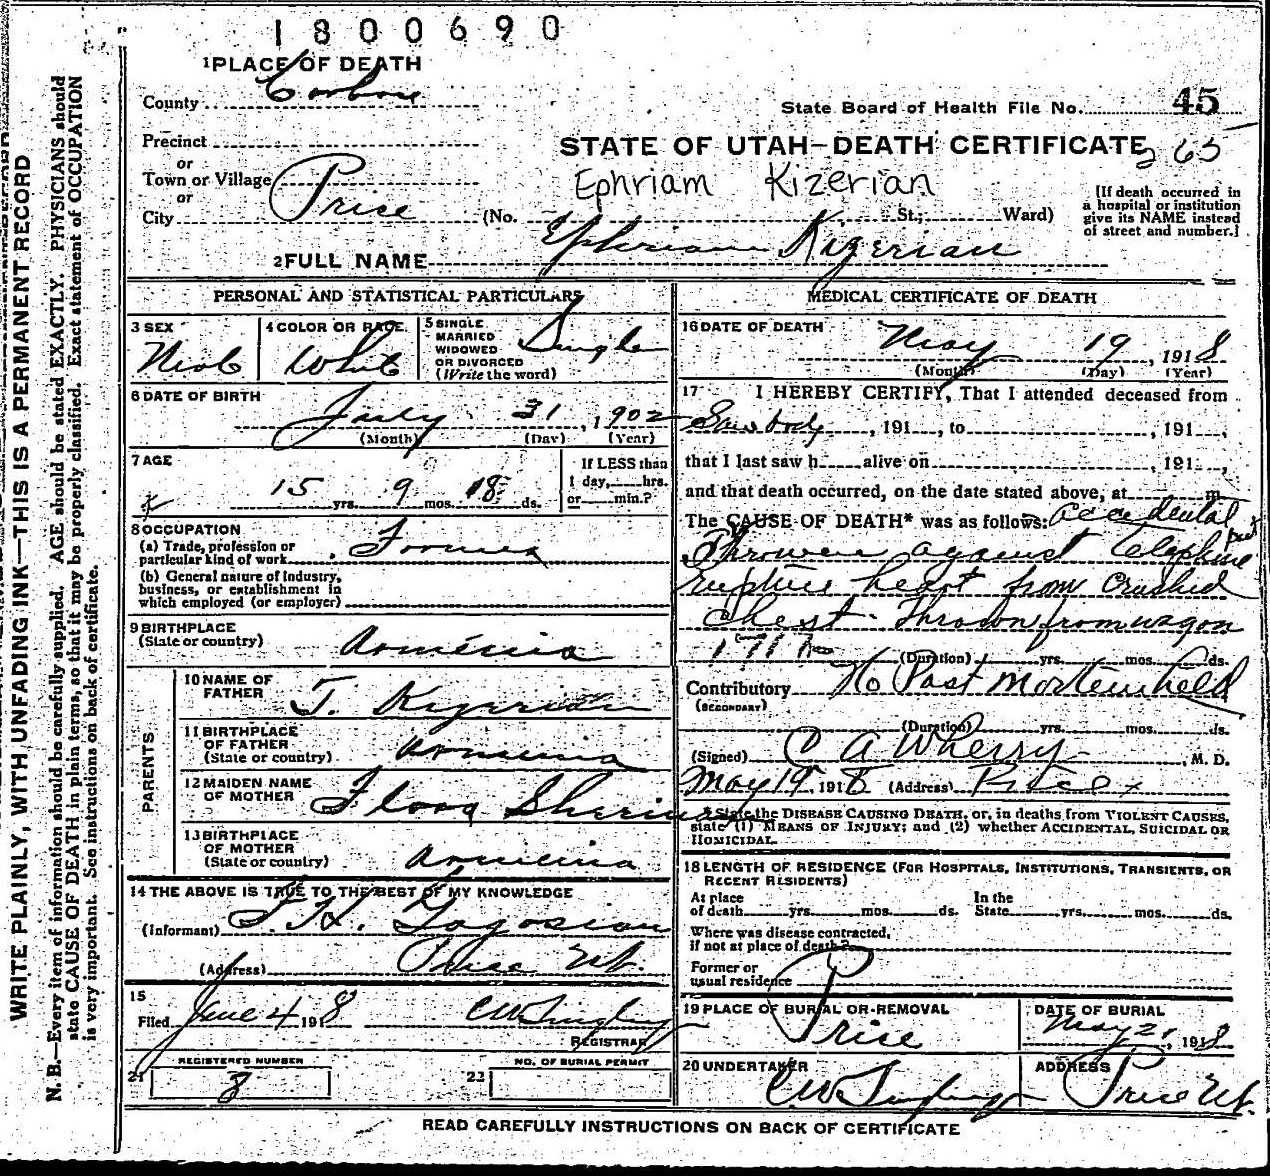 1800690
1 PLACE OF DEATH
County Carbon
State Board of Health File No. 45
Precinct
STATE OF UTAH—DEATH CERTIFICATE
265
or
Town or Village
Ephriam Kizerian
or
City Price (No. St.; Ward)
[If death occurred in
a hospital or institution
give its NAME instead
of street and number.]
2 FULL NAME Ephriam Kizerian
PERSONAL AND STATISTICAL PARTICULARS
3 SEX Male
4 COLOR OR RACE White
5 SINGLE
MARRIED
WIDOWED
OR DIVORCED
(Write the word) Single
6 DATE OF BIRTH
July 31, 1902
(Month) (Day) (Year)
7 AGE
15 yrs. 9 mos. 18 ds.
If LESS than
1 day, hrs.
or min.?
8 OCCUPATION
(a) Trade, profession or
particular kind of work Farmer
(b) General nature of Industry,
business, or establishment in
which employed (or employer)
9 BIRTHPLACE
(State or country) Armenia
PARENTS
10 NAME OF
FATHER T. Kizerian
11 BIRTHPLACE
OF FATHER
(State or country) Armenia
12 MAIDEN NAME
OF MOTHER Flora
13 BIRTHPLACE
OF MOTHER
(State or country) Armenia
14 THE ABOVE IS TRUE TO THE BEST OF MY KNOWLEDGE
(Informant) Gogosian
(Address) Price Ut.
15
Filed June 4 1918
REGISTRAR
REGISTERED NUMBER
21 8
NO. OF BURIAL PERMIT
22
MEDICAL CERTIFICATE OF DEATH
16 DATE OF DEATH
May 19, 1918
(Month) (Day) (Year)
17 I HEREBY CERTIFY, That I attended deceased from
Saw body, 191 , to , 191 ,
that I last saw h alive on , 191 ,
and that death occurred, on the date stated above, at m
The CAUSE OF DEATH* was as follows: accidental
Thrown against Telephone post
rupture heart from crushed
chest. Thrown from wagon
(Duration) yrs. mos. ds.
Contributory No Post Mortem held
(SECONDARY)
(Duration) yrs. mos. ds.
(Signed) C A Wherry, M. D.
May 19 1918 (Address) Price
* State the DISEASE CAUSING DEATH, or, in deaths from VIOLENT CAUSES,
state (1) MEANS OF INJURY; and (2) whether ACCIDENTAL, SUICIDAL OR
HOMICIDAL.
18 LENGTH OF RESIDENCE (FOR HOSPITALS, INSTITUTIONS, TRANSIENTS, OR
RECENT RESIDENTS)
At place
of death yrs. mos. ds.
In the
State yrs. mos. ds.
Where was disease contracted,
if not at place of death?
Former or
usual residence
19 PLACE OF BURIAL OR REMOVAL
Price
DATE OF BURIAL
May 21, 1918
20 UNDERTAKER
ADDRESS
Price Ut.
READ CAREFULLY INSTRUCTIONS ON BACK OF CERTIFICATE
WRITE PLAINLY, WITH UNFADING INK—THIS IS A PERMANENT RECORD
N. B.—Every item of information should be carefully supplied. AGE should be stated EXACTLY. PHYSICIANS should
state CAUSE OF DEATH in plain terms, so that it may be properly classified. Exact statement of OCCUPATION
is very important. See instructions on back of certificate.